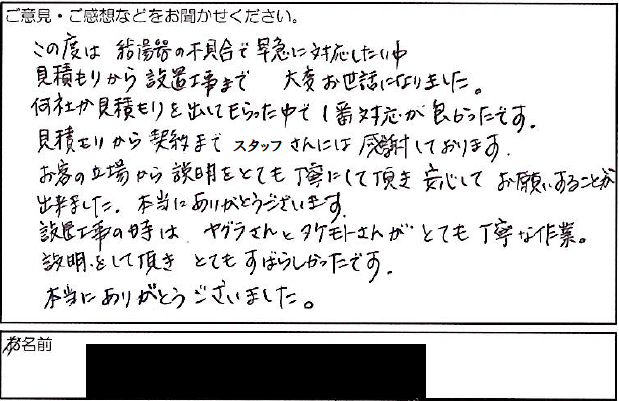 ご意見・ご感想などをお聞かせください。
この度は 給湯器の不具合で早急に対応したい中
見積もりから設置工事まで 大変お世話になりました。
何社か見積もりを出してもらった中で1番対応が良かったです。
見積もりから契約まで スタッフさんには感謝しております。
お客の立場から説明をとても丁寧にして頂き安心してお願いすることが
出来ました。本当にありがとうございます。
設置工事の時は ヤグラさんとタケモトさんがとても丁寧な作業。
説明をして頂き とてもすばらしかったです。
本当にありがとうございました。
お名前